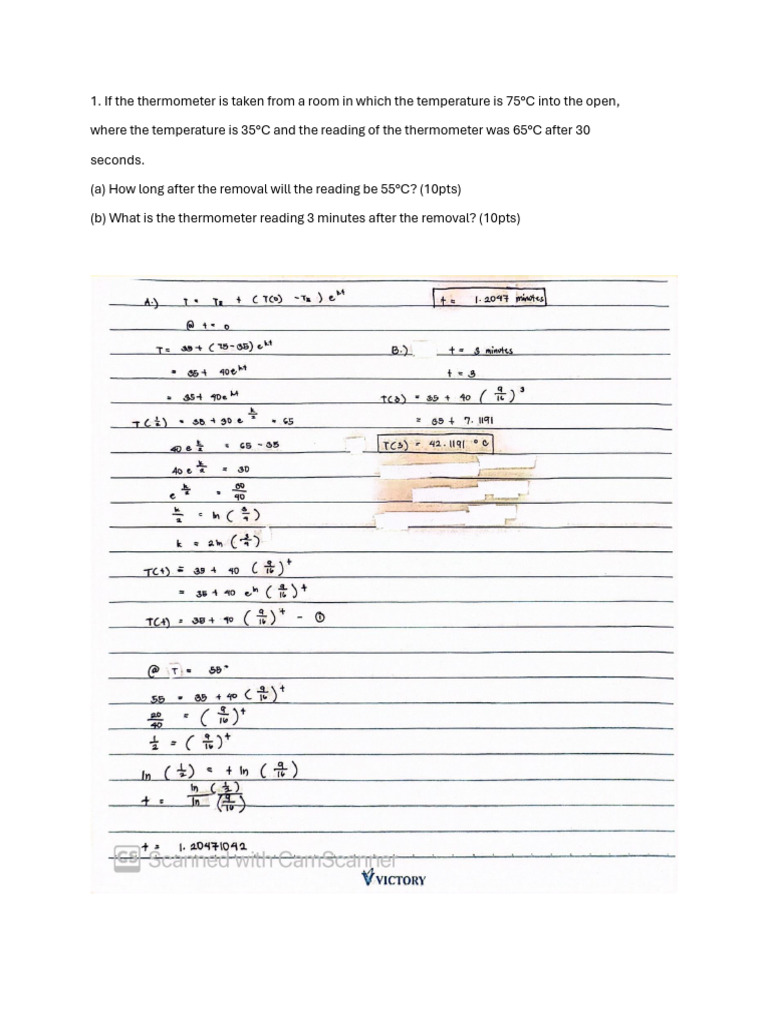 1. If the thermometer is taken from a room in which the temperature is 75°C into the open,
where the temperature is 35°C and the reading of the thermometer was 65°C after 30
seconds.
(a) How long after the removal will the reading be 55°C? (10pts)
(b) What is the thermometer reading 3 minutes after the removal? (10pts)
A.) T = T₂ + (T(0) - T₂) e^kt
@ t = 0
T = 35 + (75-35) e^kt
= 35 + 40e^kt
= 35 + 40e^kt
T(1/2) = 35 + 30 e^k/2 = 65
40 e^k/2 = 65 - 35
40 e^k/2 = 30
e^k/2 = 30/40
k/2 = ln (3/4)
k = 2ln (3/4)
T(t) = 35 + 40 (9/16)^t
= 35 + 40 e^ln (9/16)^t
T(t) = 35 + 40 (9/16)^t - ①
@ T = 55°
55 = 35 + 40 (9/16)^t
20/40 = (9/16)^t
1/2 = (9/16)^t
ln (1/2) = t ln (9/16)
t = ln (1/2) / ln (9/16)
t = 1.20471042
t = 1.2047 minutes
B.) t = 3 minutes
t = 3
T(3) = 35 + 40 (9/16)^3
= 35 + 7.1191
T(3) = 42.1191 °C
CS Scanned with CamScanner
VICTORY